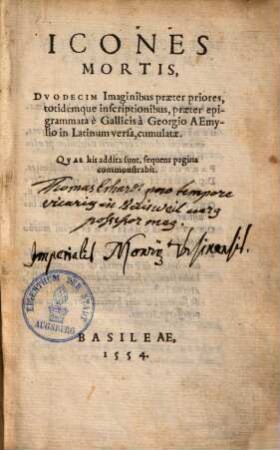 ICONES
MORTIS,
DVODECIM Imaginibus præter priores,
totidémque inscriptionibus, præter epi-
grammata è Gallicis à Georgio AEmy-
lio in Latinum versa, cumulatæ.
QVAE his addita sunt, sequens pagina
commonstrabit.
Thomas pro tempore
vicarius in
possessor
Imperialis
EIGENTUM DER STADT
AUGSBURG
BASILEAE,
1554.